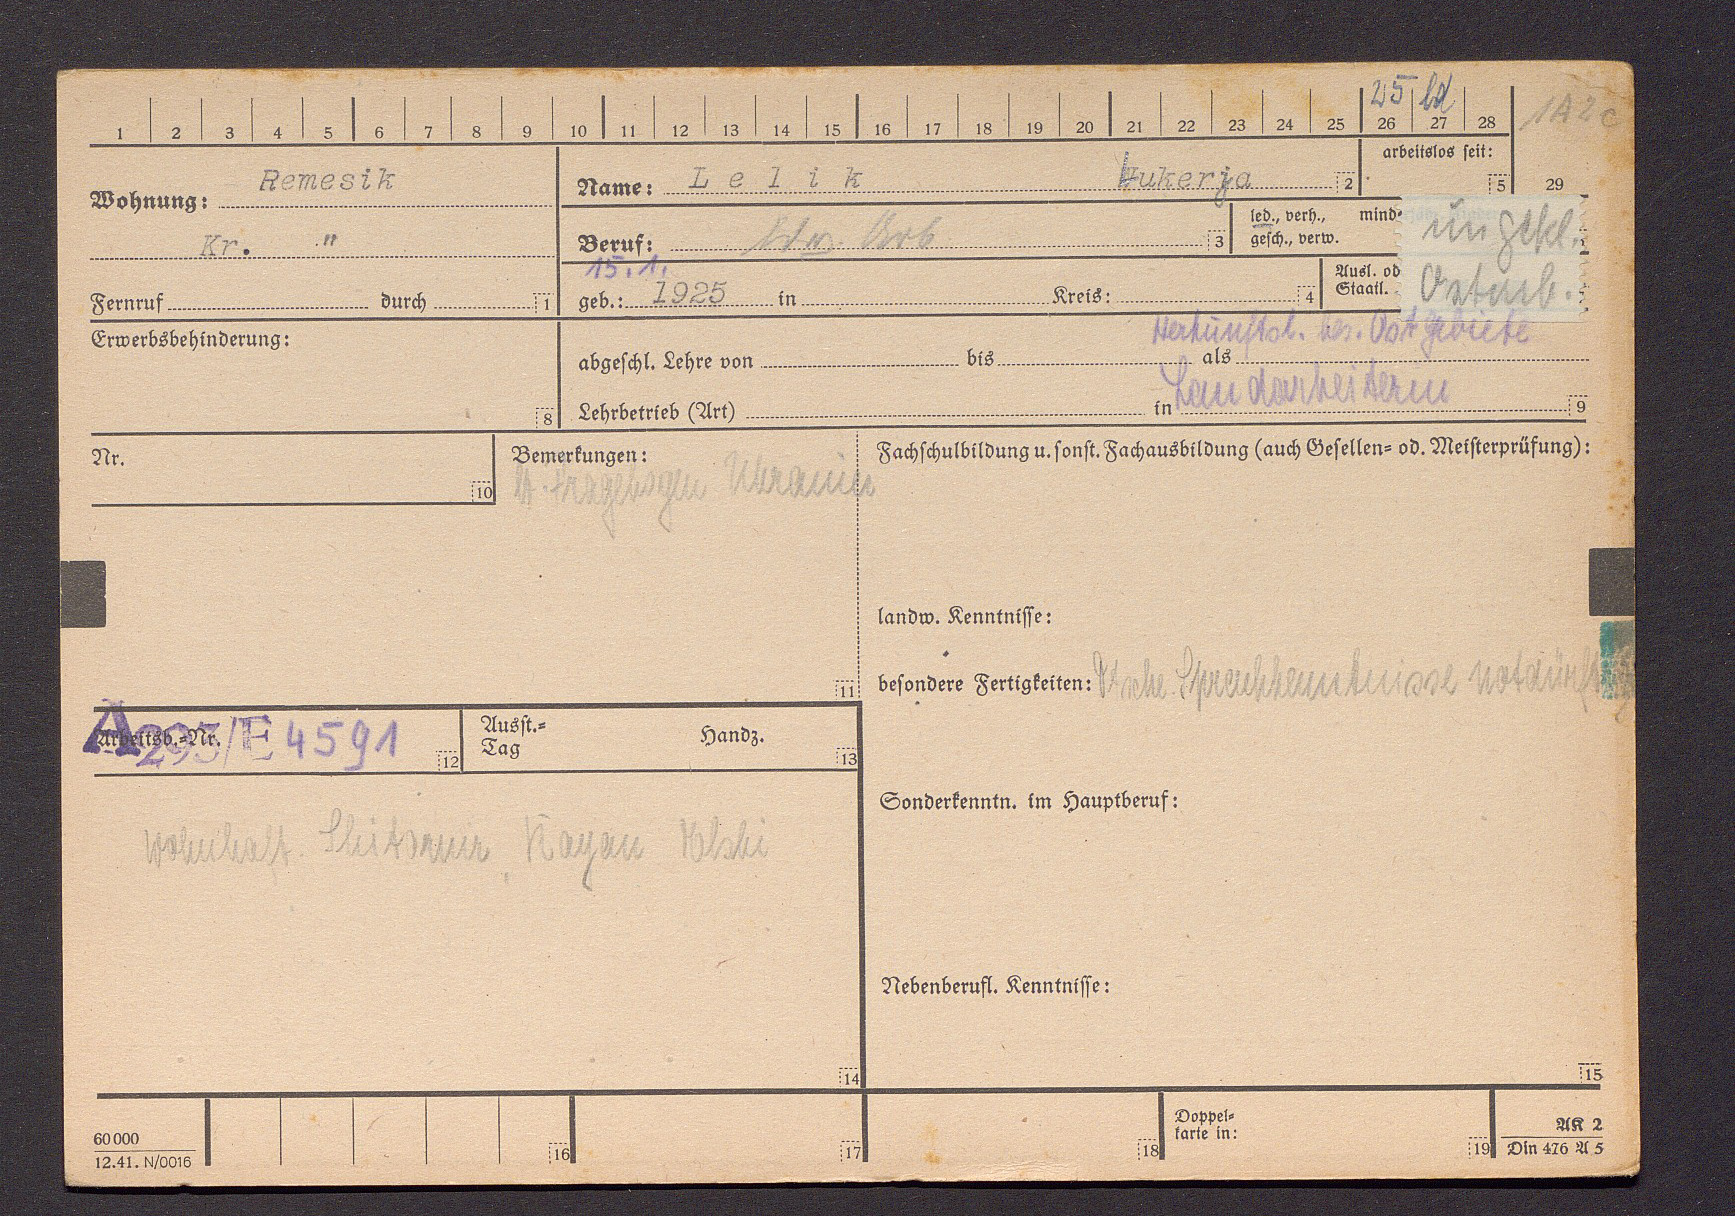 25 bd
1A2c
1 2 3 4 5 6 7 8 9 10 11 12 13 14 15 16 17 18 19 20 21 22 23 24 25 26 27 28
29
Wohnung: Remesik
Kr. "
Fernruf durch 1
Name: Lelik Lukerja 2
arbeitslos seit: 5
Beruf: 3
led., verh., mind-
gesch., verw.
ungekl.
Ostarb.
15.1.
geb.: 1925 in Kreis: 4
Ausl. od
Staatl.
Herkunftsl. bes. Ostgebiete
Erwerbsbehinderung:
8
abgeschl. Lehre von bis als
Landarbeiterin
Lehrbetrieb (Art) in 9
Nr.
10
Bemerkungen:
lt. Fragebogen Ukrainin
11
Fachschulbildung u. sonst. Fachausbildung (auch Gesellen- od. Meisterprüfung):
landw. Kenntnisse:
besondere Fertigkeiten: Dtsche. Sprachkenntnisse notdürftig
Arbeitsb.-Nr. A 295/E 4591 12
Ausst.-
Tag
Handz.
13
wohnhaft. Shitomir, Rayan
14
Sonderkenntn. im Hauptberuf:
Nebenberufl. Kenntnisse:
15
60000
12.41. N/0016
16
17
18
Doppel-
karte in:
19
AK 2
Din 476 A 5